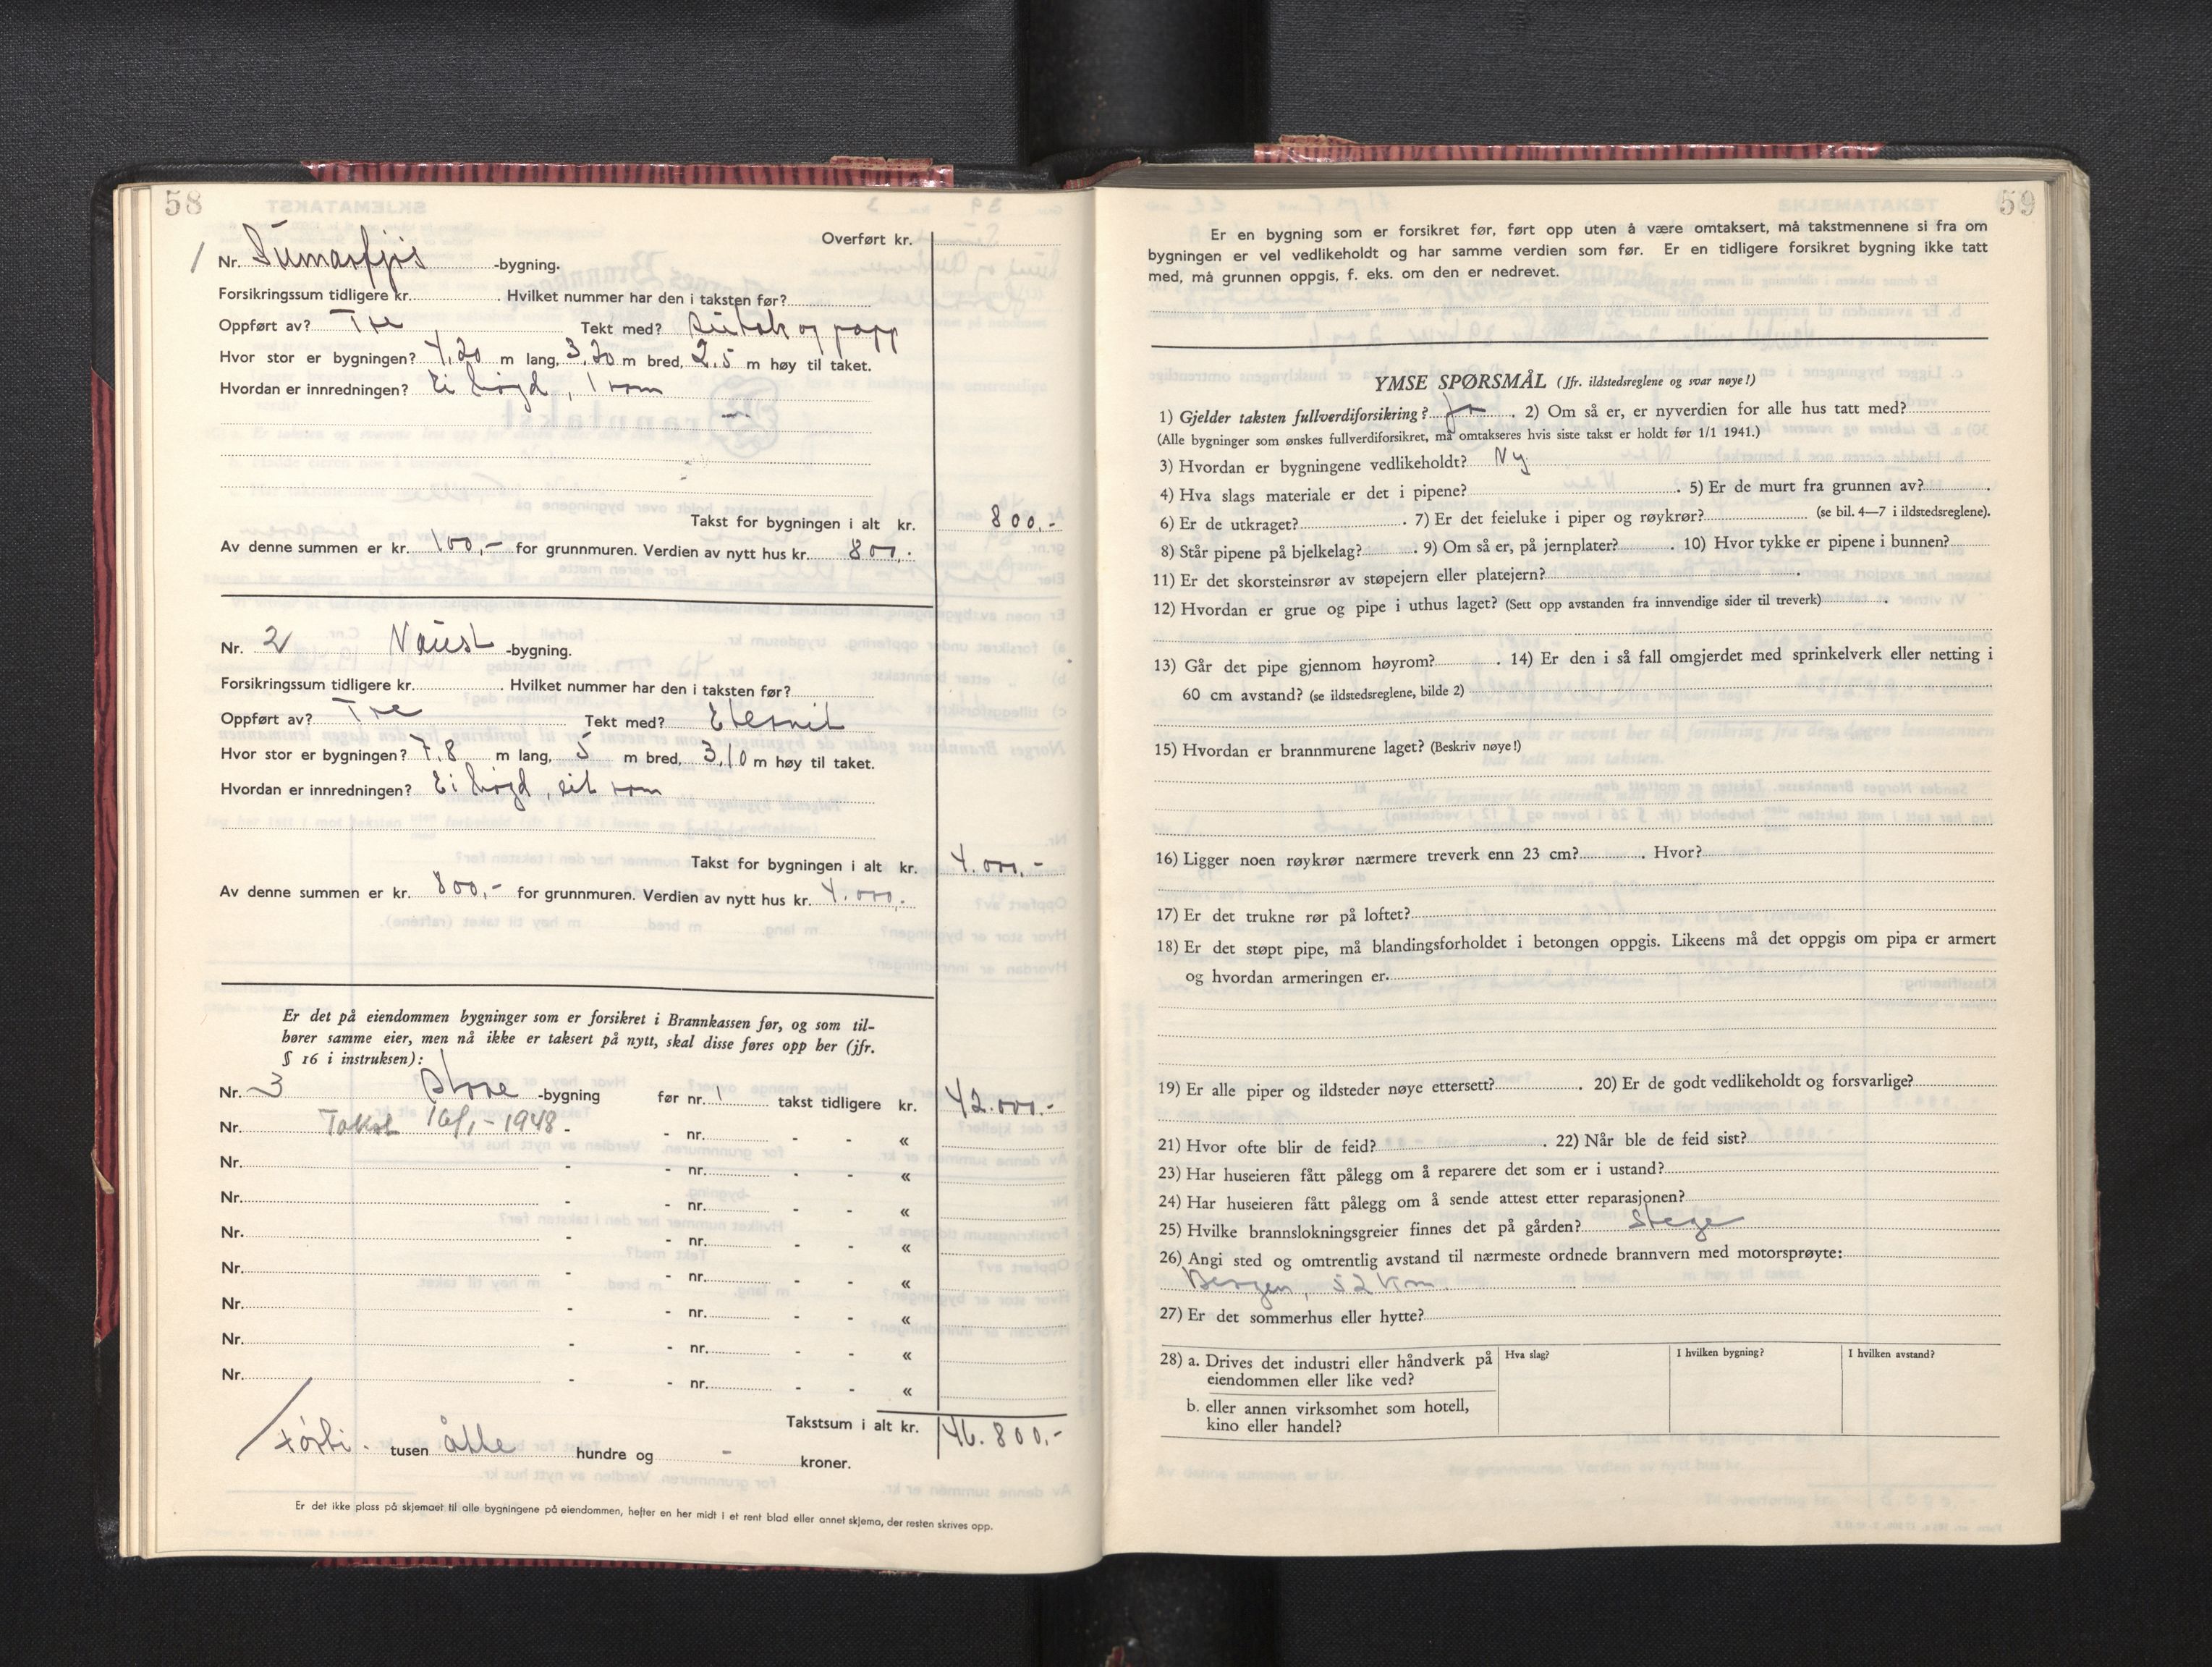 58
Overført kr.
1 Nr. Sumarfjós -bygning.
Forsikringssum tidligere kr. . Hvilket nummer har den i taksten før?
Oppført av? Tre Tekt med? sutak og papp
Hvor stor er bygningen? 4,20 m lang, 3,20 m bred, 2,5 m høy til taket.
Hvordan er innredningen? Ei høgd, 1 rom
Takst for bygningen i alt kr. 800,-
Av denne summen er kr. 100,- for grunnmuren. Verdien av nytt hus kr. 800,-
Nr. 2 Naust -bygning.
Forsikringssum tidligere kr. . Hvilket nummer har den i taksten før?
Oppført av? Tre Tekt med? Eternit
Hvor stor er bygningen? 7,8 m lang, 5 m bred, 3,10 m høy til taket.
Hvordan er innredningen? Ei høgd, eit rom
Takst for bygningen i alt kr. 4.000,-
Av denne summen er kr. 800,- for grunnmuren. Verdien av nytt hus kr. 4.000,-
Er det på eiendommen bygninger som er forsikret i Brannkassen før, og som til-
hører samme eier, men nå ikke er taksert på nytt, skal disse føres opp her (jfr.
§ 16 i instruksen):
Nr. 3 Stove -bygning før nr. 1 takst tidligere kr. 42.000.-
Nr. Takst 16/1-1948 - - nr. - - «
Nr. - - nr. - - «
Nr. - - nr. - - «
Nr. - - nr. - - «
Nr. - - nr. - - «
Nr. - - nr. - - «
Nr. - - nr. - - «
Nr. - - nr. - - «
Takstsum i alt kr. 46.800,-
tusen åtte hundre og - kroner.
Er det ikke plass på skjemaet til alle bygningene på eiendommen, hefter en her midt i et rent blad eller annet skjema, der resten skrives opp.
59
Er en bygning som er forsikret før, ført opp uten å være omtaksert, må takstmennene si fra om
bygningen er vel vedlikeholdt og har samme verdien som før. Er en tidligere forsikret bygning ikke tatt
med, må grunnen oppgis, f. eks. om den er nedrevet.
YMSE SPØRSMÅL (Jfr. ildstedsreglene og svar nøye!)
1) Gjelder taksten fullverdiforsikring? Ja . 2) Om så er, er nyverdien for alle hus tatt med?
(Alle bygninger som ønskes fullverdiforsikret, må omtakseres hvis siste takst er holdt før 1/1 1941.)
3) Hvordan er bygningene vedlikeholdt? Ny
4) Hva slags materiale er det i pipene? . 5) Er de murt fra grunnen av? .
6) Er de utkraget? . 7) Er det feieluke i piper og røykrør? (se bil. 4—7 i ildstedsreglene).
8) Står pipene på bjelkelag? . 9) Om så er, på jernplater? . 10) Hvor tykke er pipene i bunnen?
11) Er det skorsteinsrør av støpejern eller platejern? .
12) Hvordan er grue og pipe i uthus laget? (Sett opp avstanden fra innvendige sider til treverk) .
13) Går det pipe gjennom høyrom? . 14) Er den i så fall omgjerdet med sprinkelverk eller netting i
60 cm avstand? (se ildstedsreglene, bilde 2)
15) Hvordan er brannmurene laget? (Beskriv nøye!)
16) Ligger noen røykrør nærmere treverk enn 23 cm? . Hvor?
17) Er det trukne rør på loftet?
18) Er det støpt pipe, må blandingsforholdet i betongen oppgis. Likeens må det oppgis om pipa er armert
og hvordan armeringen er.
19) Er alle piper og ildsteder nøye ettersett? . 20) Er de godt vedlikeholdt og forsvarlige?
21) Hvor ofte blir de feid? . 22) Når ble de feid sist?
23) Har huseieren fått pålegg om å reparere det som er i ustand?
24) Har huseieren fått pålegg om å sende attest etter reparasjonen?
25) Hvilke brannslokningsgreier finnes det på gården? Stege
26) Angi sted og omtrentlig avstand til nærmeste ordnede brannvern med motorsprøyte:
Bergen, 52 km.
27) Er det sommerhus eller hytte?
28) a. Drives det industri eller håndverk på eiendommen eller like ved?
Hva slag? I hvilken bygning? I hvilken avstand?
b. eller annen virksomhet som hotell,
kino eller handel?